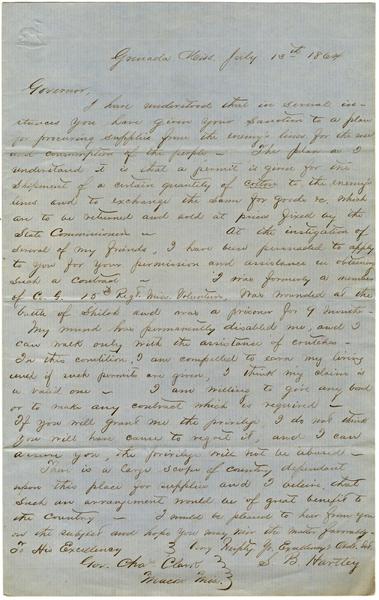 Grenada Miss, July 13th 1864
Governor,
I have understood that in several in-
stances you have given your sanction to a plan
for procuring supplies from the enemy's lines for the use
and consumption of the people – The plan as I
understand it is that a permit is given for the
shipment of a certain quantity of cotton to the enemy's
lines and to exchange the same for goods &c. which
are to be returned and sold at prices fixed by the
State Commissioner – At the instigation of
several of my friends, I have been persuaded to apply
to you for your permission and assistance in obtaining
such a contract – I was formerly a member
of Co. G. 15th Regt. Miss. Volunteers. Was wounded at the
battle of Shiloh and was a prisoner for 9 months –
My wound has permanently disabled me, and I
can walk only with the assistance of crutches –
In this condition, I am compelled to earn my living
and if such permits are given, I think my claim is
a valid one – I am willing to give any bond
or to make any contract which is required –
If you will grant me the privilege I do not think
you will have cause to regret it, and I can
assure you, the privilege will not be abused –
There is a large scope of country dependent
upon this place for supplies and I believe, that
such an arrangement would be of great benefit to
the country – I would be pleased to hear from you
on the subject and hope you may view the matter favorably –
To His Excellency Very Respty Yr. Excellency's Obdt. Svt.
Gov. Chas Clark S. B. Hartley
Macon Miss.